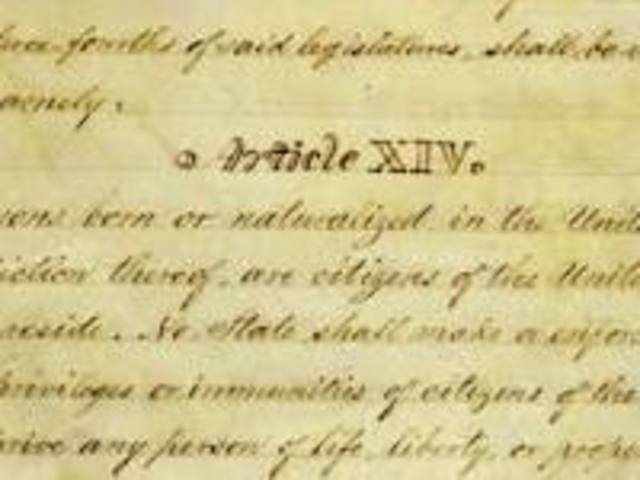 three fourths of said legislatures, shall be
namely.
Article XIV.
born or naturalized in the
thereof, are citizens of the
reside. No State shall make or
privileges or immunities of citizens of the
any person of life, liberty, or